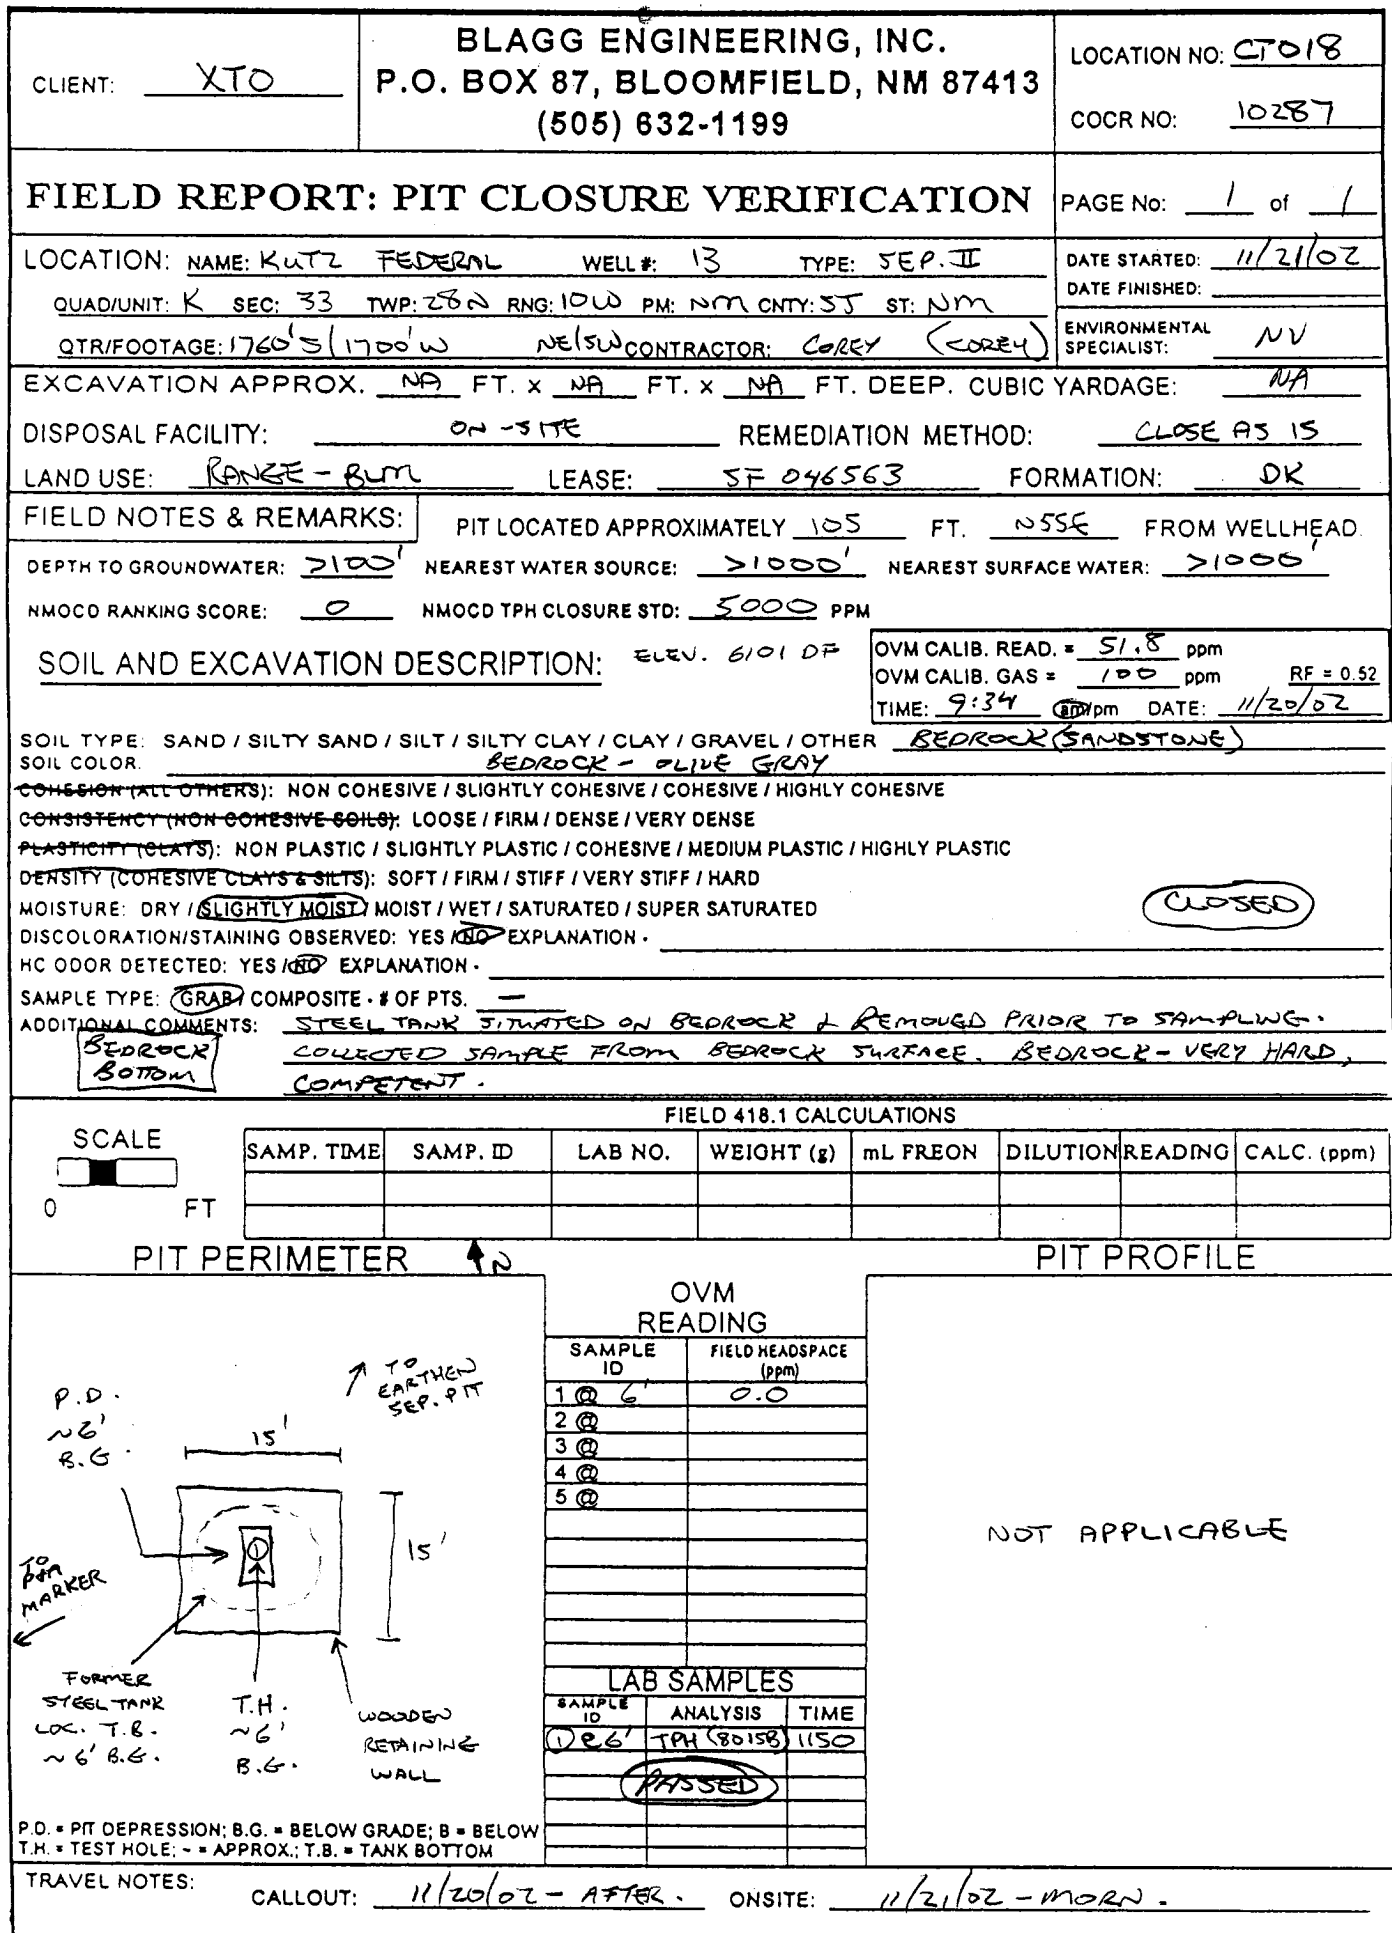 CLIENT: XTO
BLAGG ENGINEERING, INC.
P.O. BOX 87, BLOOMFIELD, NM 87413
(505) 632-1199
LOCATION NO: CT018
COCR NO: 10287
FIELD REPORT: PIT CLOSURE VERIFICATION
PAGE No: 1 of 1
LOCATION: NAME: KUTZ FEDERAL WELL #: 13 TYPE: SEP. II
QUAD/UNIT: K SEC: 33 TWP: 28N RNG: 10W PM: NM CNTY: SJ ST: NM
QTR/FOOTAGE: 1760'S/1700'W NE/SW CONTRACTOR: COREY (COREY)
DATE STARTED: 11/21/02
DATE FINISHED:
ENVIRONMENTAL
SPECIALIST: NV
EXCAVATION APPROX. NA FT. x NA FT. x NA FT. DEEP. CUBIC YARDAGE: NA
DISPOSAL FACILITY: ON-SITE REMEDIATION METHOD: CLOSE AS IS
LAND USE: RANGE - BLM LEASE: SF 046563 FORMATION: DK
FIELD NOTES & REMARKS: PIT LOCATED APPROXIMATELY 105 FT. N55E FROM WELLHEAD.
DEPTH TO GROUNDWATER: >100' NEAREST WATER SOURCE: >1000' NEAREST SURFACE WATER: >1000'
NMOCD RANKING SCORE: 0 NMOCD TPH CLOSURE STD: 5000 PPM
SOIL AND EXCAVATION DESCRIPTION: ELEV. 6101 DF
OVM CALIB. READ. = 51.8 ppm
OVM CALIB. GAS = 100 ppm RF = 0.52
TIME: 9:34 am/pm DATE: 11/20/02
SOIL TYPE: SAND / SILTY SAND / SILT / SILTY CLAY / CLAY / GRAVEL / OTHER BEDROCK (SANDSTONE)
SOIL COLOR: BEDROCK - OLIVE GRAY
COHESION (ALL OTHERS): NON COHESIVE / SLIGHTLY COHESIVE / COHESIVE / HIGHLY COHESIVE
CONSISTENCY (NON COHESIVE SOILS): LOOSE / FIRM / DENSE / VERY DENSE
PLASTICITY (CLAYS): NON PLASTIC / SLIGHTLY PLASTIC / COHESIVE / MEDIUM PLASTIC / HIGHLY PLASTIC
DENSITY (COHESIVE CLAYS & SILTS): SOFT / FIRM / STIFF / VERY STIFF / HARD
MOISTURE: DRY / SLIGHTLY MOIST / MOIST / WET / SATURATED / SUPER SATURATED
CLOSED
DISCOLORATION/STAINING OBSERVED: YES / NO EXPLANATION -
HC ODOR DETECTED: YES / NO EXPLANATION -
SAMPLE TYPE: GRAB / COMPOSITE - # OF PTS. —
ADDITIONAL COMMENTS: STEEL TANK SITUATED ON BEDROCK & REMOVED PRIOR TO SAMPLING.
COLLECTED SAMPLE FROM BEDROCK SURFACE. BEDROCK - VERY HARD,
COMPETENT.
BEDROCK
BOTTOM
FIELD 418.1 CALCULATIONS
SCALE
0 FT
SAMP. TIME SAMP. ID LAB NO. WEIGHT (g) mL FREON DILUTION READING CALC. (ppm)
PIT PERIMETER N
PIT PROFILE
OVM
READING
SAMPLE
ID
FIELD HEADSPACE
(ppm)
1 @ 6' 0.0
2 @
3 @
4 @
5 @
TO
EARTHEN
SEP. PIT
P.D.
~6'
B.G.
15'
15'
1
TO
P&A
MARKER
FORMER
STEEL TANK
LOC. T.B.
~6' B.G.
T.H.
~6'
B.G.
WOODEN
RETAINING
WALL
NOT APPLICABLE
LAB SAMPLES
SAMPLE
ID
ANALYSIS TIME
① @ 6' TPH (8015B) 1150
PASSED
P.D. = PIT DEPRESSION; B.G. = BELOW GRADE; B = BELOW
T.H. = TEST HOLE; ~ = APPROX.; T.B. = TANK BOTTOM
TRAVEL NOTES:
CALLOUT: 11/20/02 - AFTER. ONSITE: 11/21/02 - MORN.